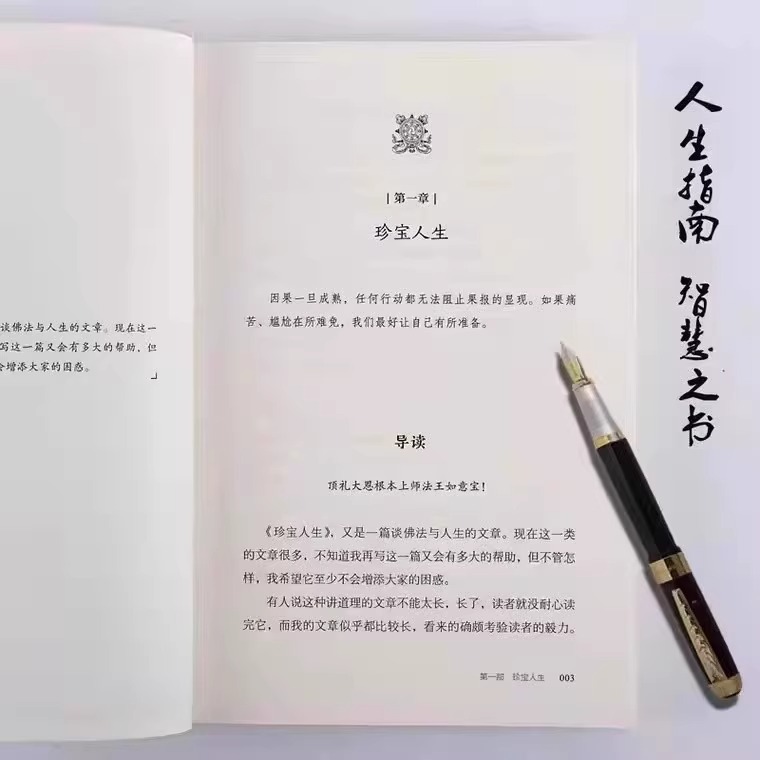 谈佛法与人生的文章。现在这一
写这一篇又会有多大的帮助，但
会增添大家的困惑。
第一章
珍宝人生
因果一旦成熟，任何行动都无法阻止果报的显现。如果痛
苦、尴尬在所难免，我们最好让自己有所准备。
导读
顶礼大恩根本上师法王如意宝！
《珍宝人生》，又是一篇谈佛法与人生的文章。现在这一类
的文章很多，不知道我再写这一篇又会有多大的帮助，但不管怎
样，我希望它至少不会增添大家的困惑。
有人说这种讲道理的文章不能太长，长了，读者就没耐心读
完它，而我的文章似乎都比较长，看来的确颇考验读者的毅力。
第一部 珍宝人生 003
人生指南 智慧之书